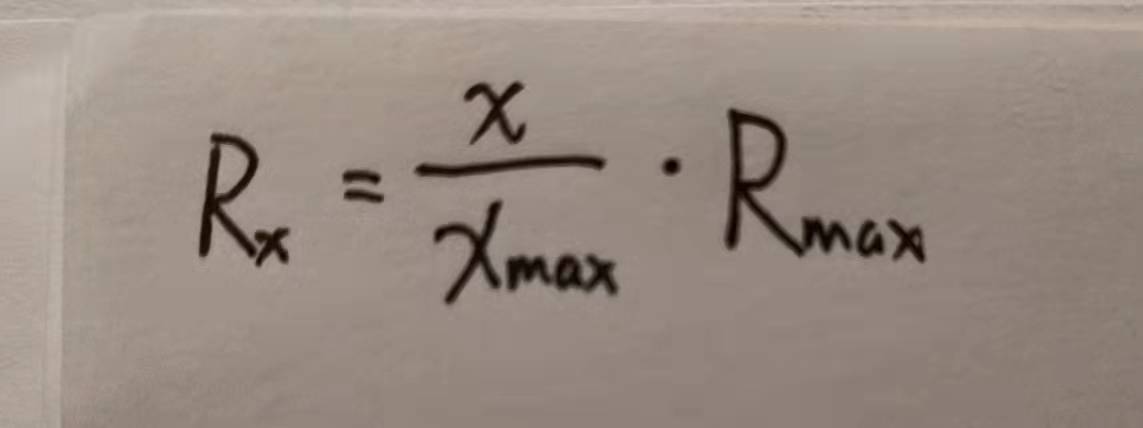 Rₓ = x / xmax · Rmax